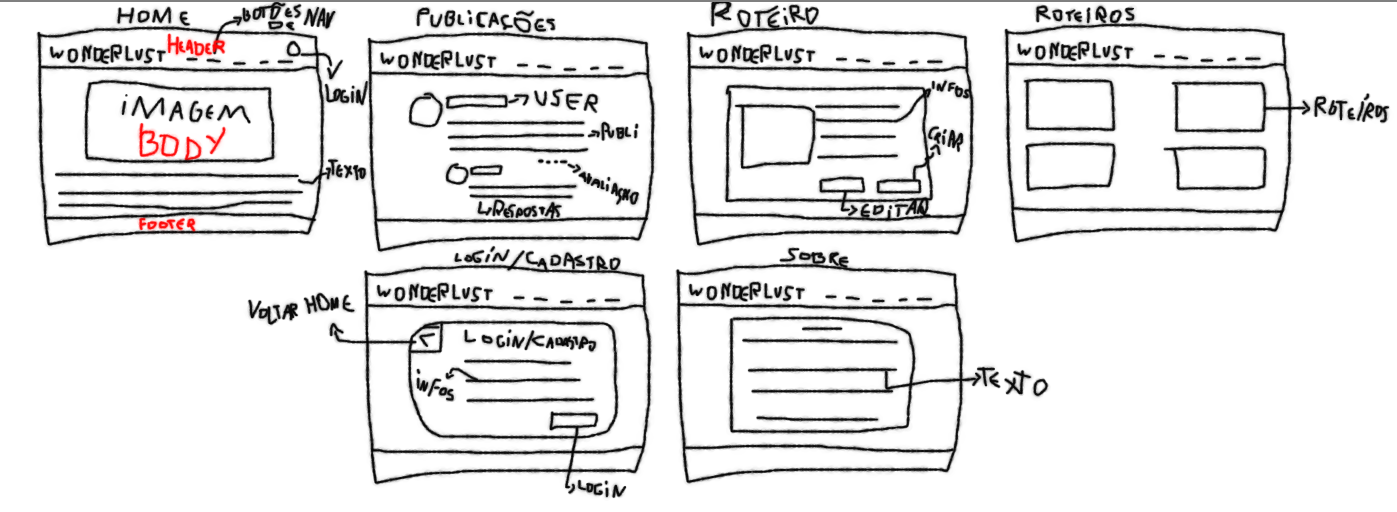 HOME
BOTÕES NAV
DE
WONDERLUST HEADER
LOGIN
IMAGEM
BODY
TEXTO
FOOTER
PUBLICAÇÕES
WONDERLUST
USER
PUBLI
AVALIAÇÃO
RESPOSTAS
ROTEIRO
WONDERLUST
INFOS
CRIAR
EDITAR
ROTEIROS
WONDERLUST
ROTEÍROS
LOGIN/CADASTRO
WONDERLUST
VOLTAR HOME
<
LOGIN/CADASTRO
INFOS
LOGIN
SOBRE
WONDERLUST
TEXTO